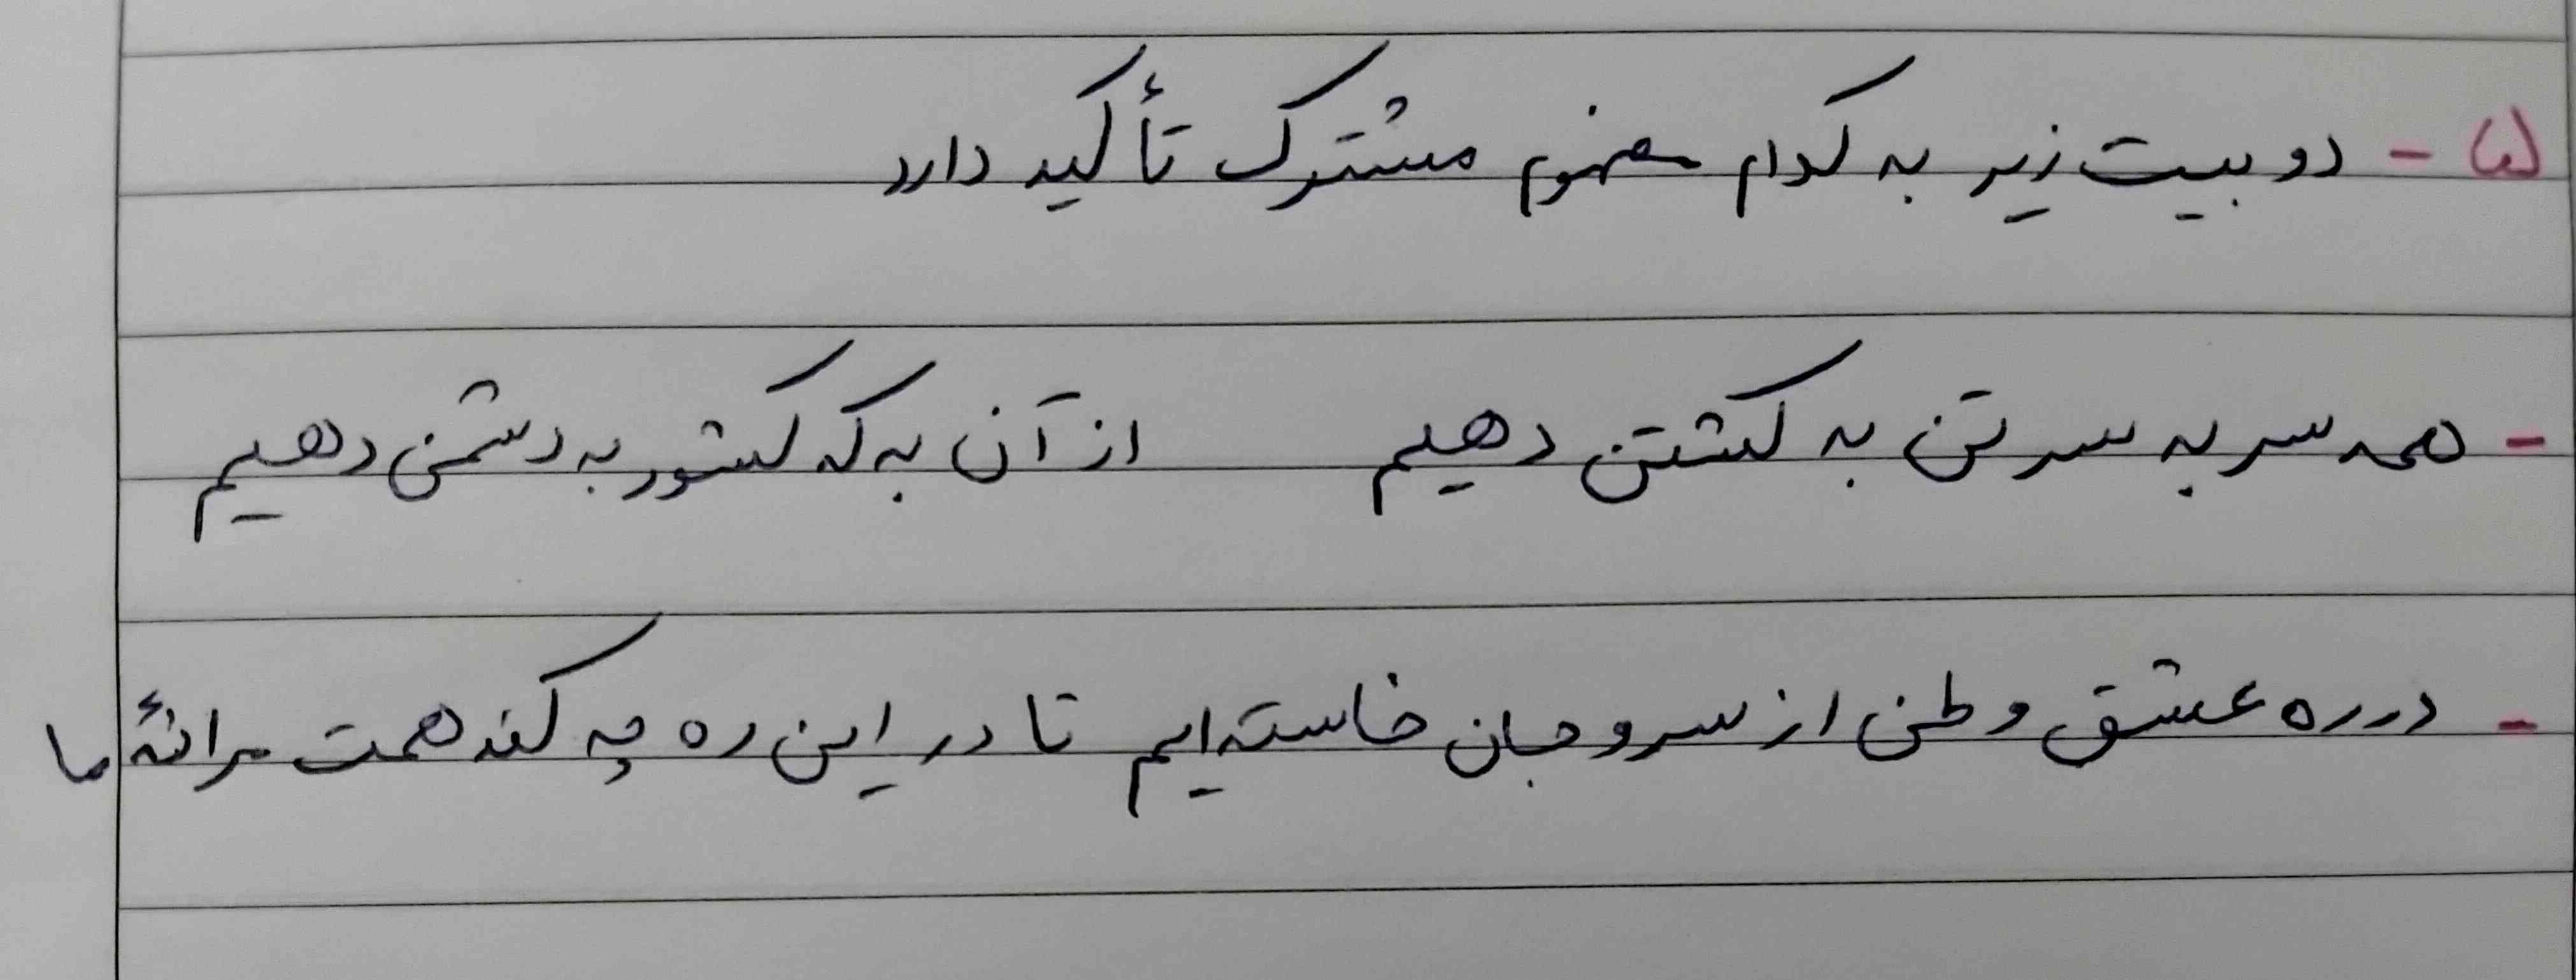 ۵ - دو بیت زیر به کدام مفهوم مشترک تأکید دارد
- همه سر به سر تن به کشتن دهیم از آن به که کشور به دشمن دهیم
- در ره عشق وطن از سر و جان خاسته ایم تا در این ره چه کند همت مردانهٔ ما